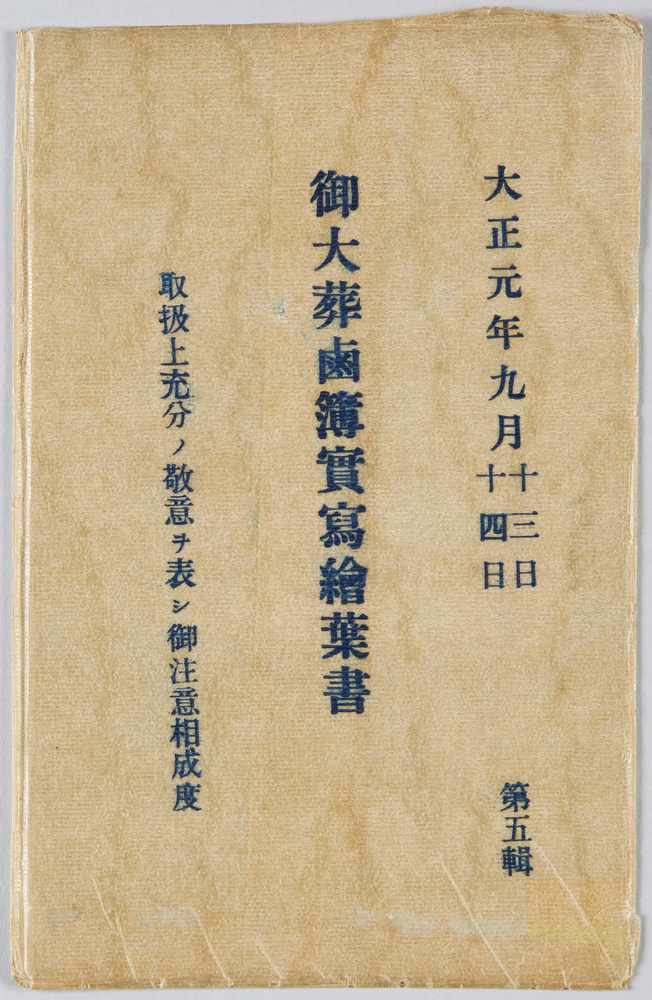 大正元年九月十三日
十四日
第五輯
御大葬鹵簿實寫繪葉書
取扱上充分ノ敬意ヲ表シ御注意相成度